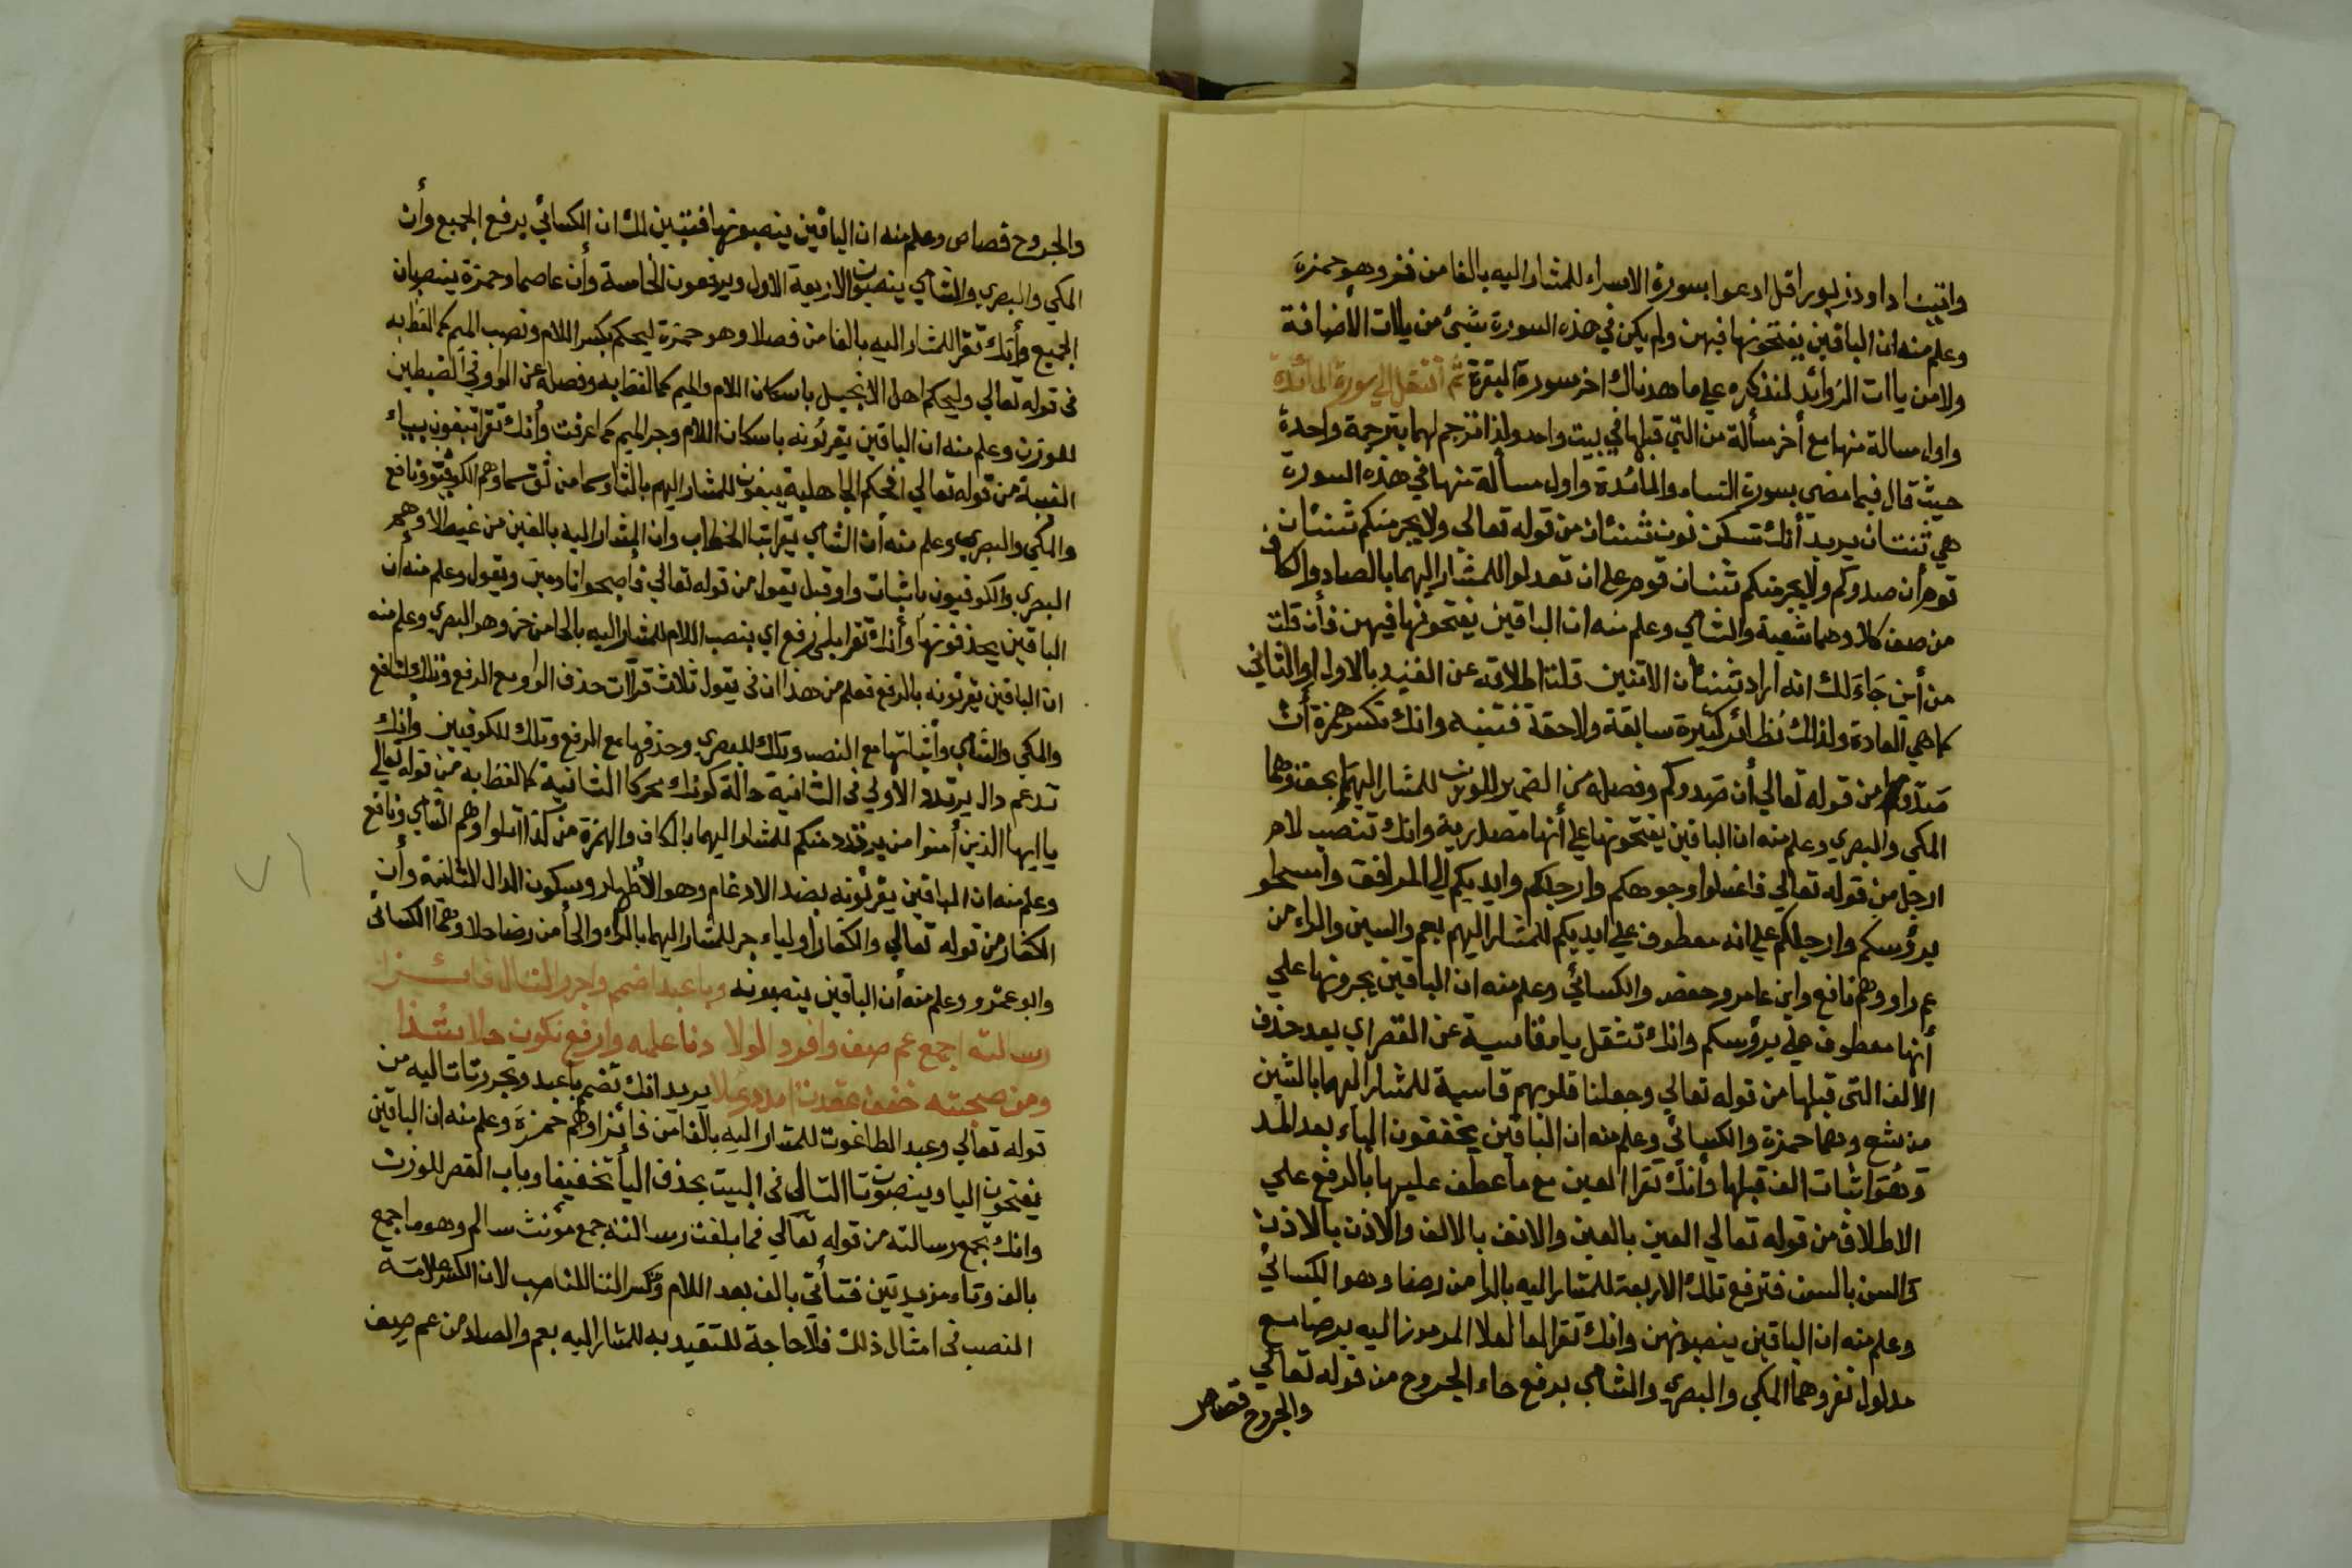 واتينا داود زبورا قل ادعوا بسورة الاسراء للمشار اليه بالفا من فخر وهو حمزة
وعلم منه ان الباقين يفتحونها فيهن ولم يكن في هذه السورة شيئ من ياات الأضافة
ولا من ياات الزوائد لنذكره على ما هدناك اخر سورة البقرة ثم انتقل الي سورة المائدة
واول مسالة منها مع أخر مسألة من التي قبلها في بيت واحد ولذا ترجم لهما بترجمة واحدة
حيث قال فيما مضي بسورة النساء والمائدة واول مسألة منها في هذه السورة
هي شنئان يريد أنك تسكن نون شنئان من قوله تعالي ولا يجرمنكم شنئان
قوم أن صدوكم ولا يجرمنكم شنئان قوم على ان تعدلوا للمشار اليهما بالصاد والكاف
من صف كلا وهما شعبة والشامي وعلم منه ان الباقين يفتحونها فيهن فأن قلت
من أين جاء لك انه اراد شنئان الاثنين قلت اطلاقه عن القيد بالاول او الثاني
كما هي العادة ولذلك نظائر كثيرة سابقة ولاحقة فتنبه وانك تكسر همزة أن
صدوكم من قوله تعالي أن صدوكم وفصله عن الضمير للوزن للمشار اليهما بحق وهما
المكي والبصري وعلم منه ان الباقين يفتحونها علي أنها مصدرية وانك تنصب لام
ارجل من قوله تعالي فاغسلوا وجوهكم وارجلكم وايديكم الي المرافق وامسحوا
برؤسكم وارجلكم علي انه معطوف علي ايديكم للمشار اليهم بعم والسين والراء من
عم راو وهم نافع وابن عامر وحفص والكسائي وعلم منه ان الباقين يجرونها علي
أنها معطوف على برؤسكم وانك تثقل يا قاسية عن القصر اي بعد حذف
الألف التي قبلها من قوله تعالي وجعلنا قلوبهم قاسية للمشار اليهما بالشين
من شع وهما حمزة والكسائي وعلم منه ان الباقين يخففون الياء بعد المد
وهو اثبات الف قبلها وأنك تقرا العين مع ما عطف عليها بالرفع علي
الاطلاق من قوله تعالي العين بالعين والانف بالالف والاذن بالاذن
والسن بالسن فترفع تلك الاربعة للمشار اليه بالرا من رضا وهو الكسائي
وعلم منه ان الباقين ينصبونهن وانك تقرا المرموز اليه برضا مع
مدلول نفر وهما المكي والبصري والشامي برفع حاء الجروح من قوله تعالي
والجروح قصاص
والجروح قصاص وعلم منه ان الباقين ينصبونها فتبين لك ان الكسائي يرفع الجميع وأن
المكي والبصري والشامي ينصبون الاربعة الاول ويرفعون الخامسة وأن عاصما وحمزة ينصبان
الجميع وأنك تقرا للمشار اليه بالفا من فصلا وهو حمزة ليحكم بكسر اللام ونصب الميم كما لفظ به
في قوله تعالي وليحكم اهل الانجيل باسكان اللام والميم كما لفظ به وفصله عن الواو في الضبطين
للوزن وعلم منه ان الباقين يقرئونه باسكان اللام وجر الميم كما عرفت وأنك تقرا تبغون بياء
الغيبة من قوله تعالي افحكم الجاهلية يبغون للمشار اليهم بالثا وسما من ثق سما وهم الكوفيون ونافع
والمكي والبصري وعلم منه أن الشامي يقرا بتا الخطاب وان المشار اليه بالغين من غيطلا وهم
البصري والكوفيون باثبات واو قبل يقول من قوله تعالي فأصبحوا نادمين ويقول وعلم منه أن
الباقين يحذفونها وأنك تقرا بلمي رفع اي بنصب اللام للمشار اليه بالحا من حز وهو البصري وعلم منه
ان الباقين يقرئونه بالرفع فعلم من هذا ان في يقول ثلاث قراآت حذف الواو مع الرفع وذلك لنافع
والمكي والشامي وأثباتها مع النصب وتلك للبصري وحذفها مع الرفع وتلك للكوفيين وأنك
تدغم دال يرتدد الاولي في الثانية حالة كونك محركا الثانية كما لفظ به من قوله تعالي
يا ايها الذين أمنوا من يرتدد منكم للمشار اليهما بالكاف والهمزة من كذا اتلوا وهم الشامي ونافع
وعلم منه ان الباقين يقرئونه بضد الادغام وهو الأظهار وسكون الدال الثانية وأن
الكفار من قوله تعالي والكفار أولياء جر للمشار اليهما بالراء والحأ من رضا حلا وهما الكسائي
وابو عمرو وعلم منه أن الباقين ينصبونه وبا عبد اضمم واجرر التال فائزا
رسالته اجمع عم صف وافرد الولا دنا علمه وارفع تكون حلا شذا
ومن صحبته خفف عقدت امدد علا يريد انك تضم با عبد وتجرر تا تاليه من
قوله تعالي وعبد الطاغوت للمشار اليه بالفا من فائزا وهم حمزة وعلم منه ان الباقين
يفتحون اليا وينصبون تا التالي في البيت بحذف اليأ تخفيفا وباب القصر للوزن
وانك تجمع رسالته من قوله تعالي فما بلغت رسالته جمع مؤنث سالم وهو ما جمع
بالف وتاء مزيدتين فتأتي بالف بعد اللام وتكسر التا للناصب لان الكسر علامة
النصب في امثال ذلك فلا حاجة للتقييد به للمشار اليه بعم والصاد من عم صف